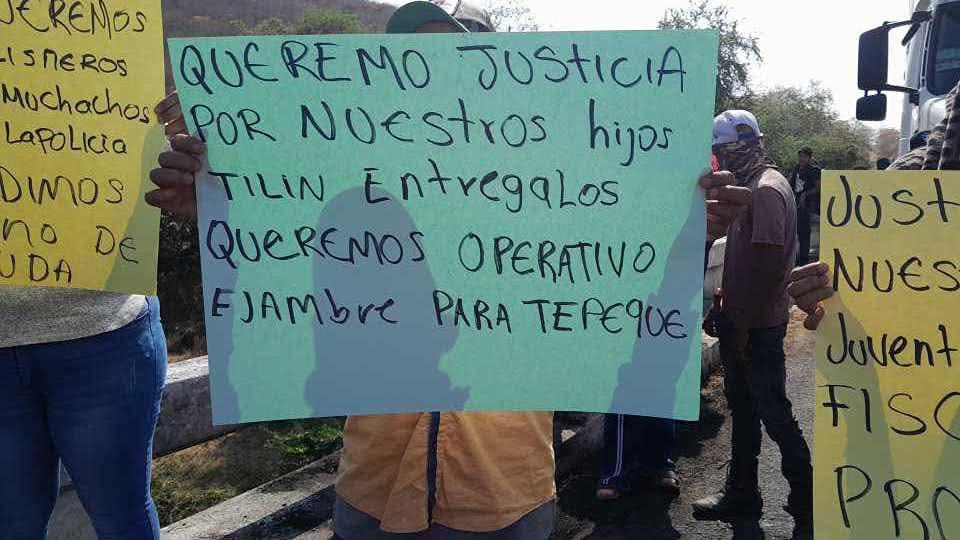 QUEREMOS
LISNEROS
MUCHACHOS
LAPOLICIA
DIMOS
NO DE
UDA
QUEREMO JUSTICIA
POR NUESTROS hijos
TILIN ENtregalos
QUEREMOS OPERATIVO
EJAMbre PARA TEPEQUE
JUST
NUES
Juvent
FISC
PRO